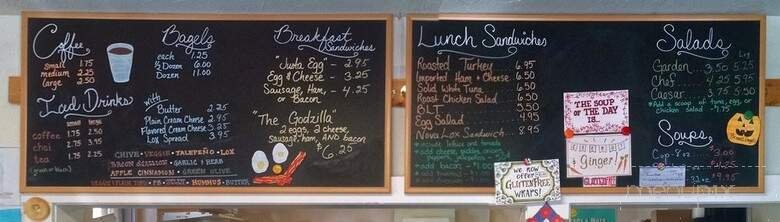 Coffee
small 1.75
medium 2.25
large 2.50
Iced Drinks
small large
coffee 1.75 2.50
chai 2.75 3.75
tea 1.75 2.25
(green or black)
Bagels
each 1.25
½ Dozen 6.00
Dozen 11.00
with
Butter 2.25
Plain Cream Cheese 2.95
Flavored Cream Cheese 3.25
Lox Spread 3.95
CHIVE · VEGGIE · JALEPEÑO · LOX
BACON SCALLION · GARLIC & HERB
APPLE CINNAMON · GREEN OLIVE
PB · HUMMUS · BUTTER
Breakfast
Sandwiches
"Justa Egg" - 2.95
Egg & Cheese - 3.25
Sausage, Ham, - 4.25
or Bacon
The "Godzilla"
2 eggs, 2 cheese,
sausage, ham, AND bacon
$6.25
Lunch Sandwiches
Roasted Turkey 6.95
Imported Ham & Cheese 6.50
Solid White Tuna 6.50
Roast Chicken Salad 6.50
BLT 5.50
Egg Salad 4.95
Nova Lox Sandwich 8.95
*include lettuce and tomato
add cheese, pickles, onions,
peppers, jalapeños
add bacon
WE NOW
OFFER
GLUTEN FREE
WRAPS!
THE SOUP
OF THE DAY
IS...
Ginger!
GLUTEN FREE
Salads
Lg
Garden 3.50 5.25
Chef 4.25 5.95
Caesar 3.75 5.50
*Add a scoop of tuna, egg, or
chicken salad
Soups
Cup - 8 oz
32 oz